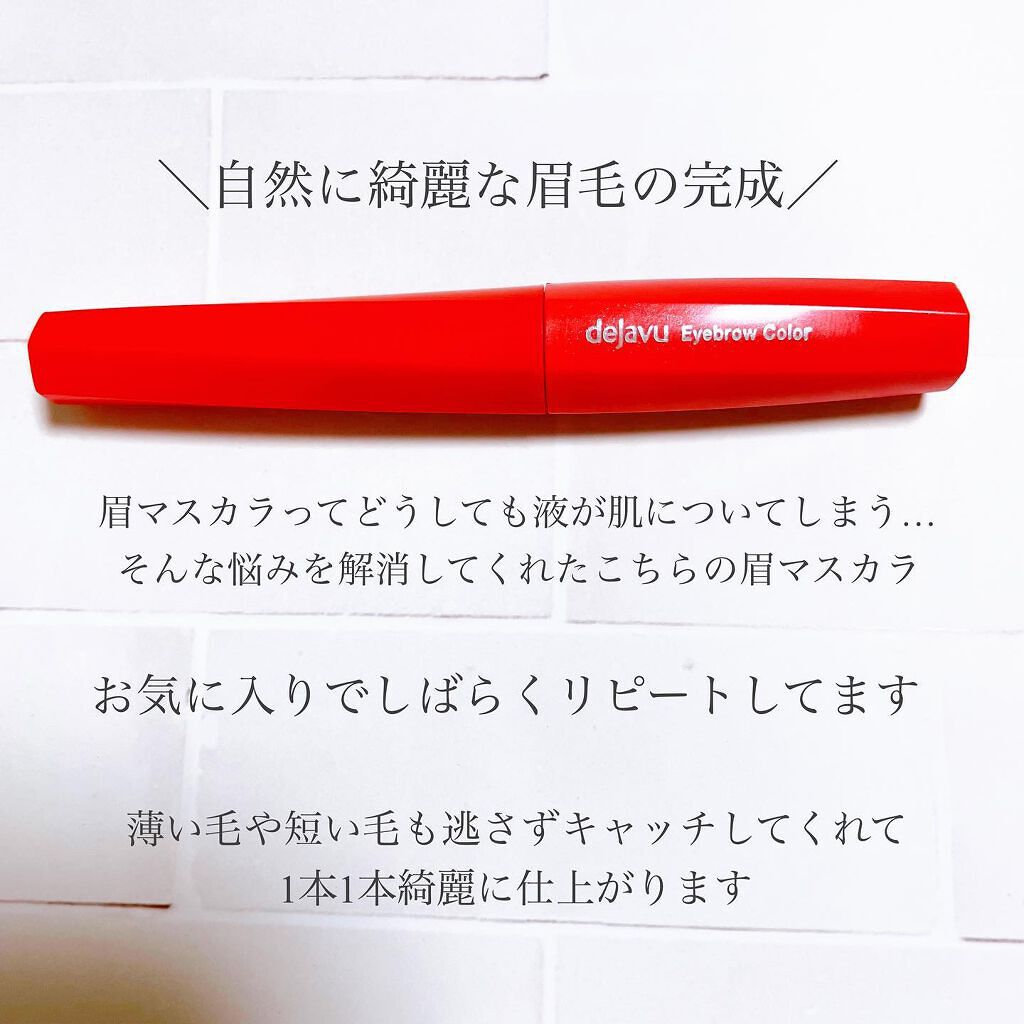 ＼自然に綺麗な眉毛の完成／
dejavu Eyebrow Color
眉マスカラってどうしても液が肌についてしまう…
そんな悩みを解消してくれたこちらの眉マスカラ
お気に入りでしばらくリピートしてます
薄い毛や短い毛も逃さずキャッチしてくれて
1本1本綺麗に仕上がります